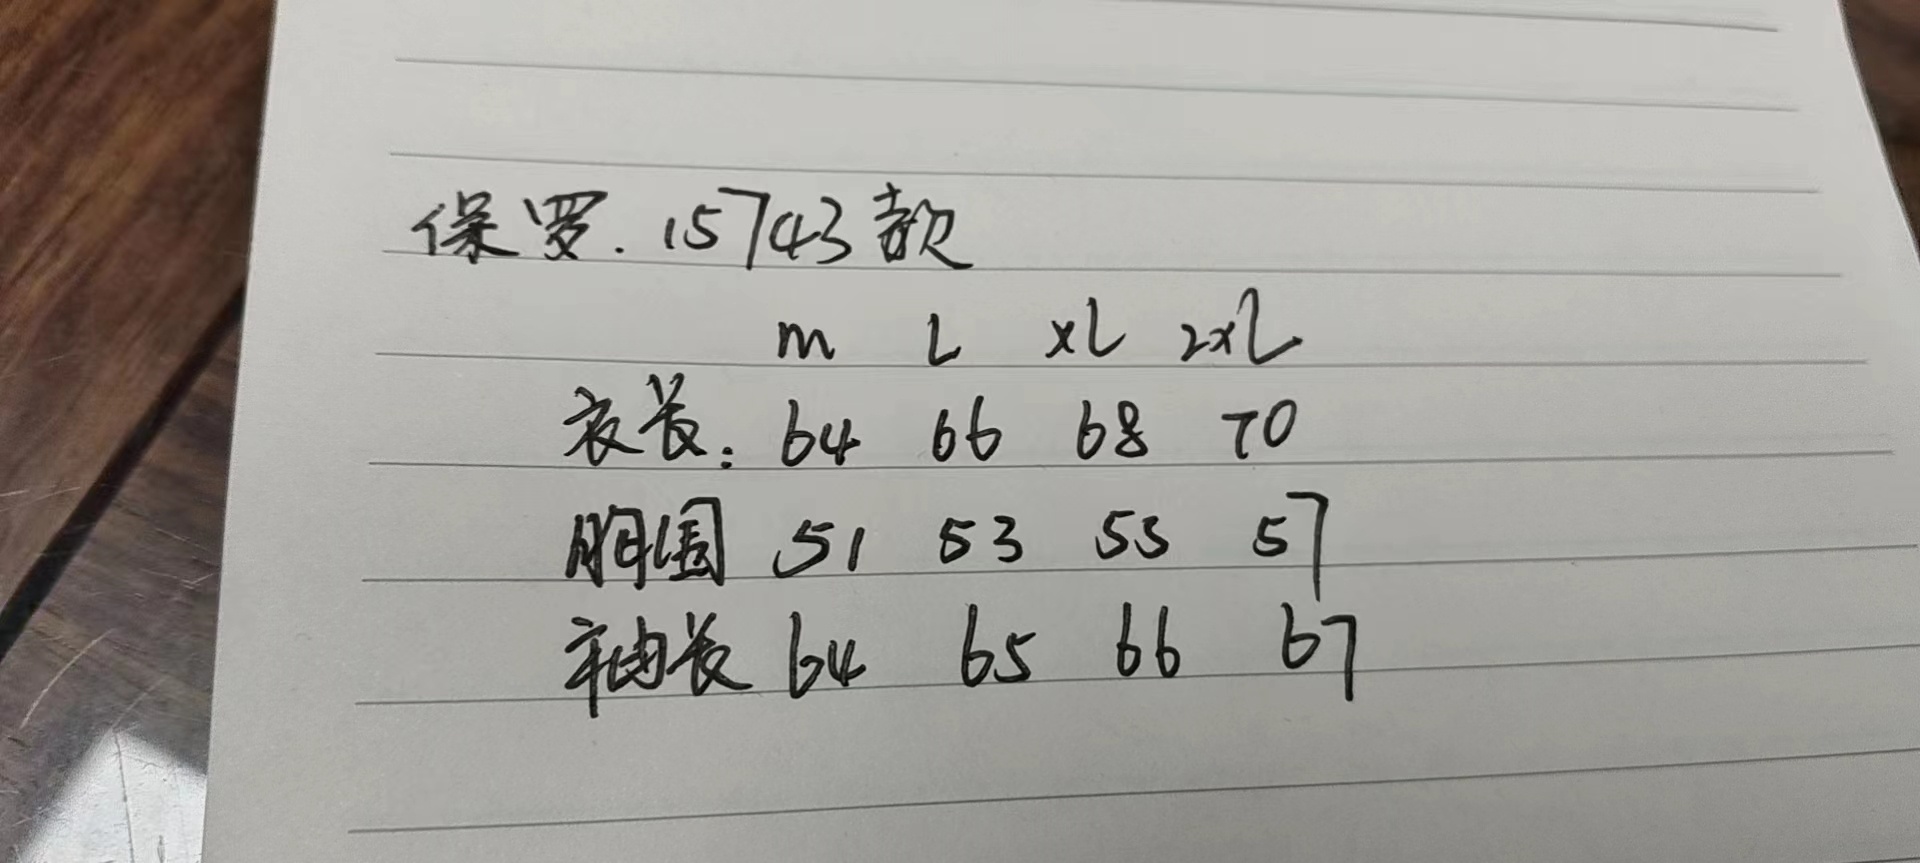 保罗.15743款
m L xL 2xL
衣长:64 66 68 70
胸围 51 53 55 57
袖长 64 65 66 67